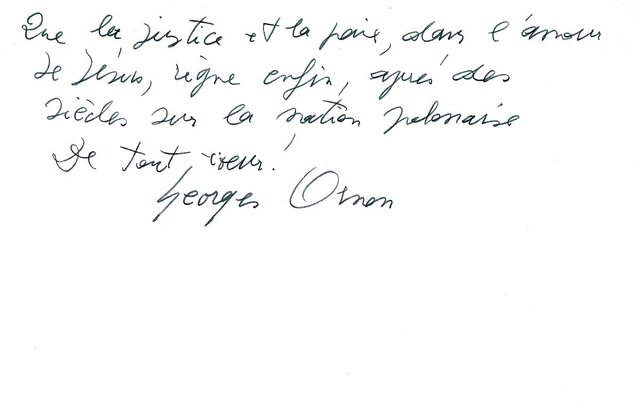 Que la justice et la paix, dans l'amour
de Jésus, règne enfin, après des
siècles sur la nation polonaise
De tout cœur!
Georges Ornon